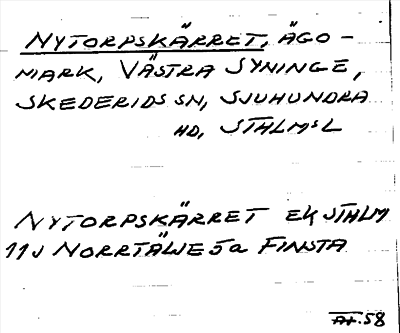 NYTORPSKÄRRET, ÄGO-
MARK, VÄSTRA SYNINGE,
SKEDERIDS SN, SJUHUNDRA
HD, STHLMSL
NYTORPSKÄRRET EK STHLM
11J NORRTÄLJE 5a FINSTA
AH.58